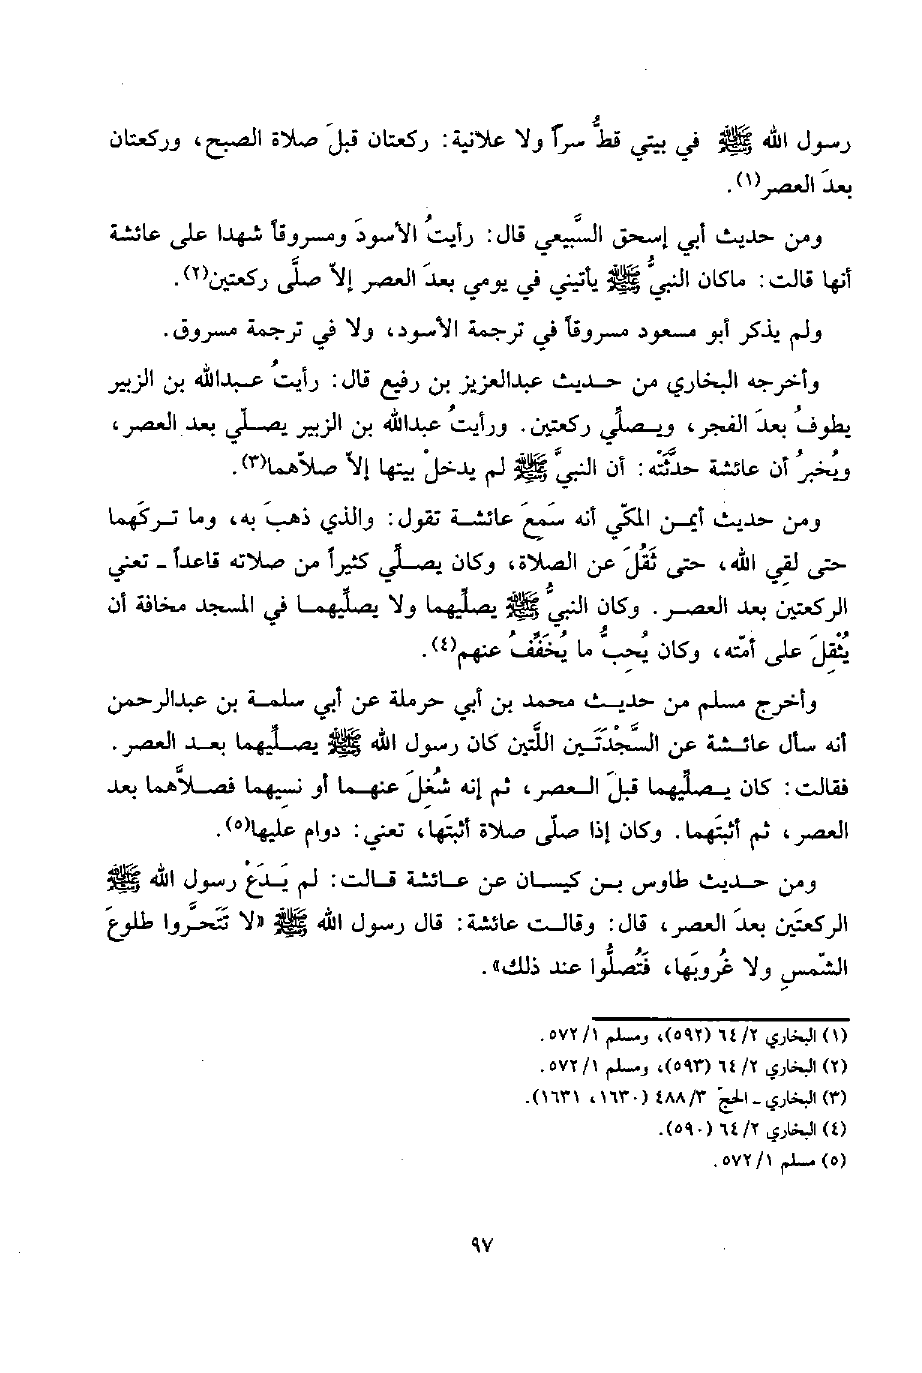 رسول الله ﷺ في بيتي قطُّ سراً ولا علانية: ركعتان قبلَ صلاة الصبح، وركعتان
بعدَ العصر(١).
ومن حديث أبي إسحق السَّبيعي قال: رأيتُ الأسودَ ومسروقاً شهدا على عائشة
أنها قالت: ماكان النبيُّ ﷺ يأتيني في يومي بعدَ العصر إلاّ صلَّى ركعتين(٢).
ولم يذكر أبو مسعود مسروقاً في ترجمة الأسود، ولا في ترجمة مسروق.
وأخرجه البخاري من حديث عبدالعزيز بن رفيع قال: رأيتُ عبدالله بن الزبير
يطوفُ بعدَ الفجر، ويصلِّي ركعتين. ورأيتُ عبدالله بن الزبير يصلّي بعد العصر،
ويُخبرُ أن عائشة حدَّثَته: أن النبيَّ ﷺ لم يدخلْ بيتها إلاّ صلاّهما(٣).
ومن حديث أيمن المكّي أنه سَمعَ عائشة تقول: والذي ذهبَ به، وما تركَهما
حتى لقي الله، حتى ثَقُلَ عن الصلاة، وكان يصلِّي كثيراً من صلاته قاعداً ـ تعني
الركعتين بعد العصر. وكان النبيُّ ﷺ يصلِّيهما ولا يصلِّيهما في المسجد مخافة أن
يُثْقِلَ على أمّته، وكان يُحِبُّ ما يُخَفِّفُ عنهم(٤).
وأخرج مسلم من حديث محمد بن أبي حرملة عن أبي سلمة بن عبدالرحمن
أنه سأل عائشة عن السَّجْدَتَين اللَّتين كان رسول الله ﷺ يصلِّيهما بعد العصر.
فقالت: كان يصلِّيهما قبلَ العصر، ثم إنه شُغِلَ عنهما أو نسيهما فصلاَّهما بعد
العصر، ثم أثبتَهما. وكان إذا صلّى صلاة أثبتَها، تعني: دوام عليها(٥).
ومن حديث طاوس بن كيسان عن عائشة قالت: لم يَدَعْ رسول الله ﷺ
الركعتَين بعدَ العصر، قال: وقالت عائشة: قال رسول الله ﷺ «لا تَتَحَرَّوا طلوعَ
الشّمسِ ولا غُروبَها، فَتُصلُّوا عند ذلك».
(١) البخاري ٢/ ٦٤ (٥٩٢)، ومسلم ١/ ٥٧٢.
(٢) البخاري ٢/ ٦٤ (٥٩٣)، ومسلم ١/ ٥٧٢.
(٣) البخاري ـ الحجّ ٣/ ٤٨٨ (١٦٣٠، ١٦٣١).
(٤) البخاري ٢/ ٦٤ (٥٩٠).
(٥) مسلم ١/ ٥٧٢.
٩٧